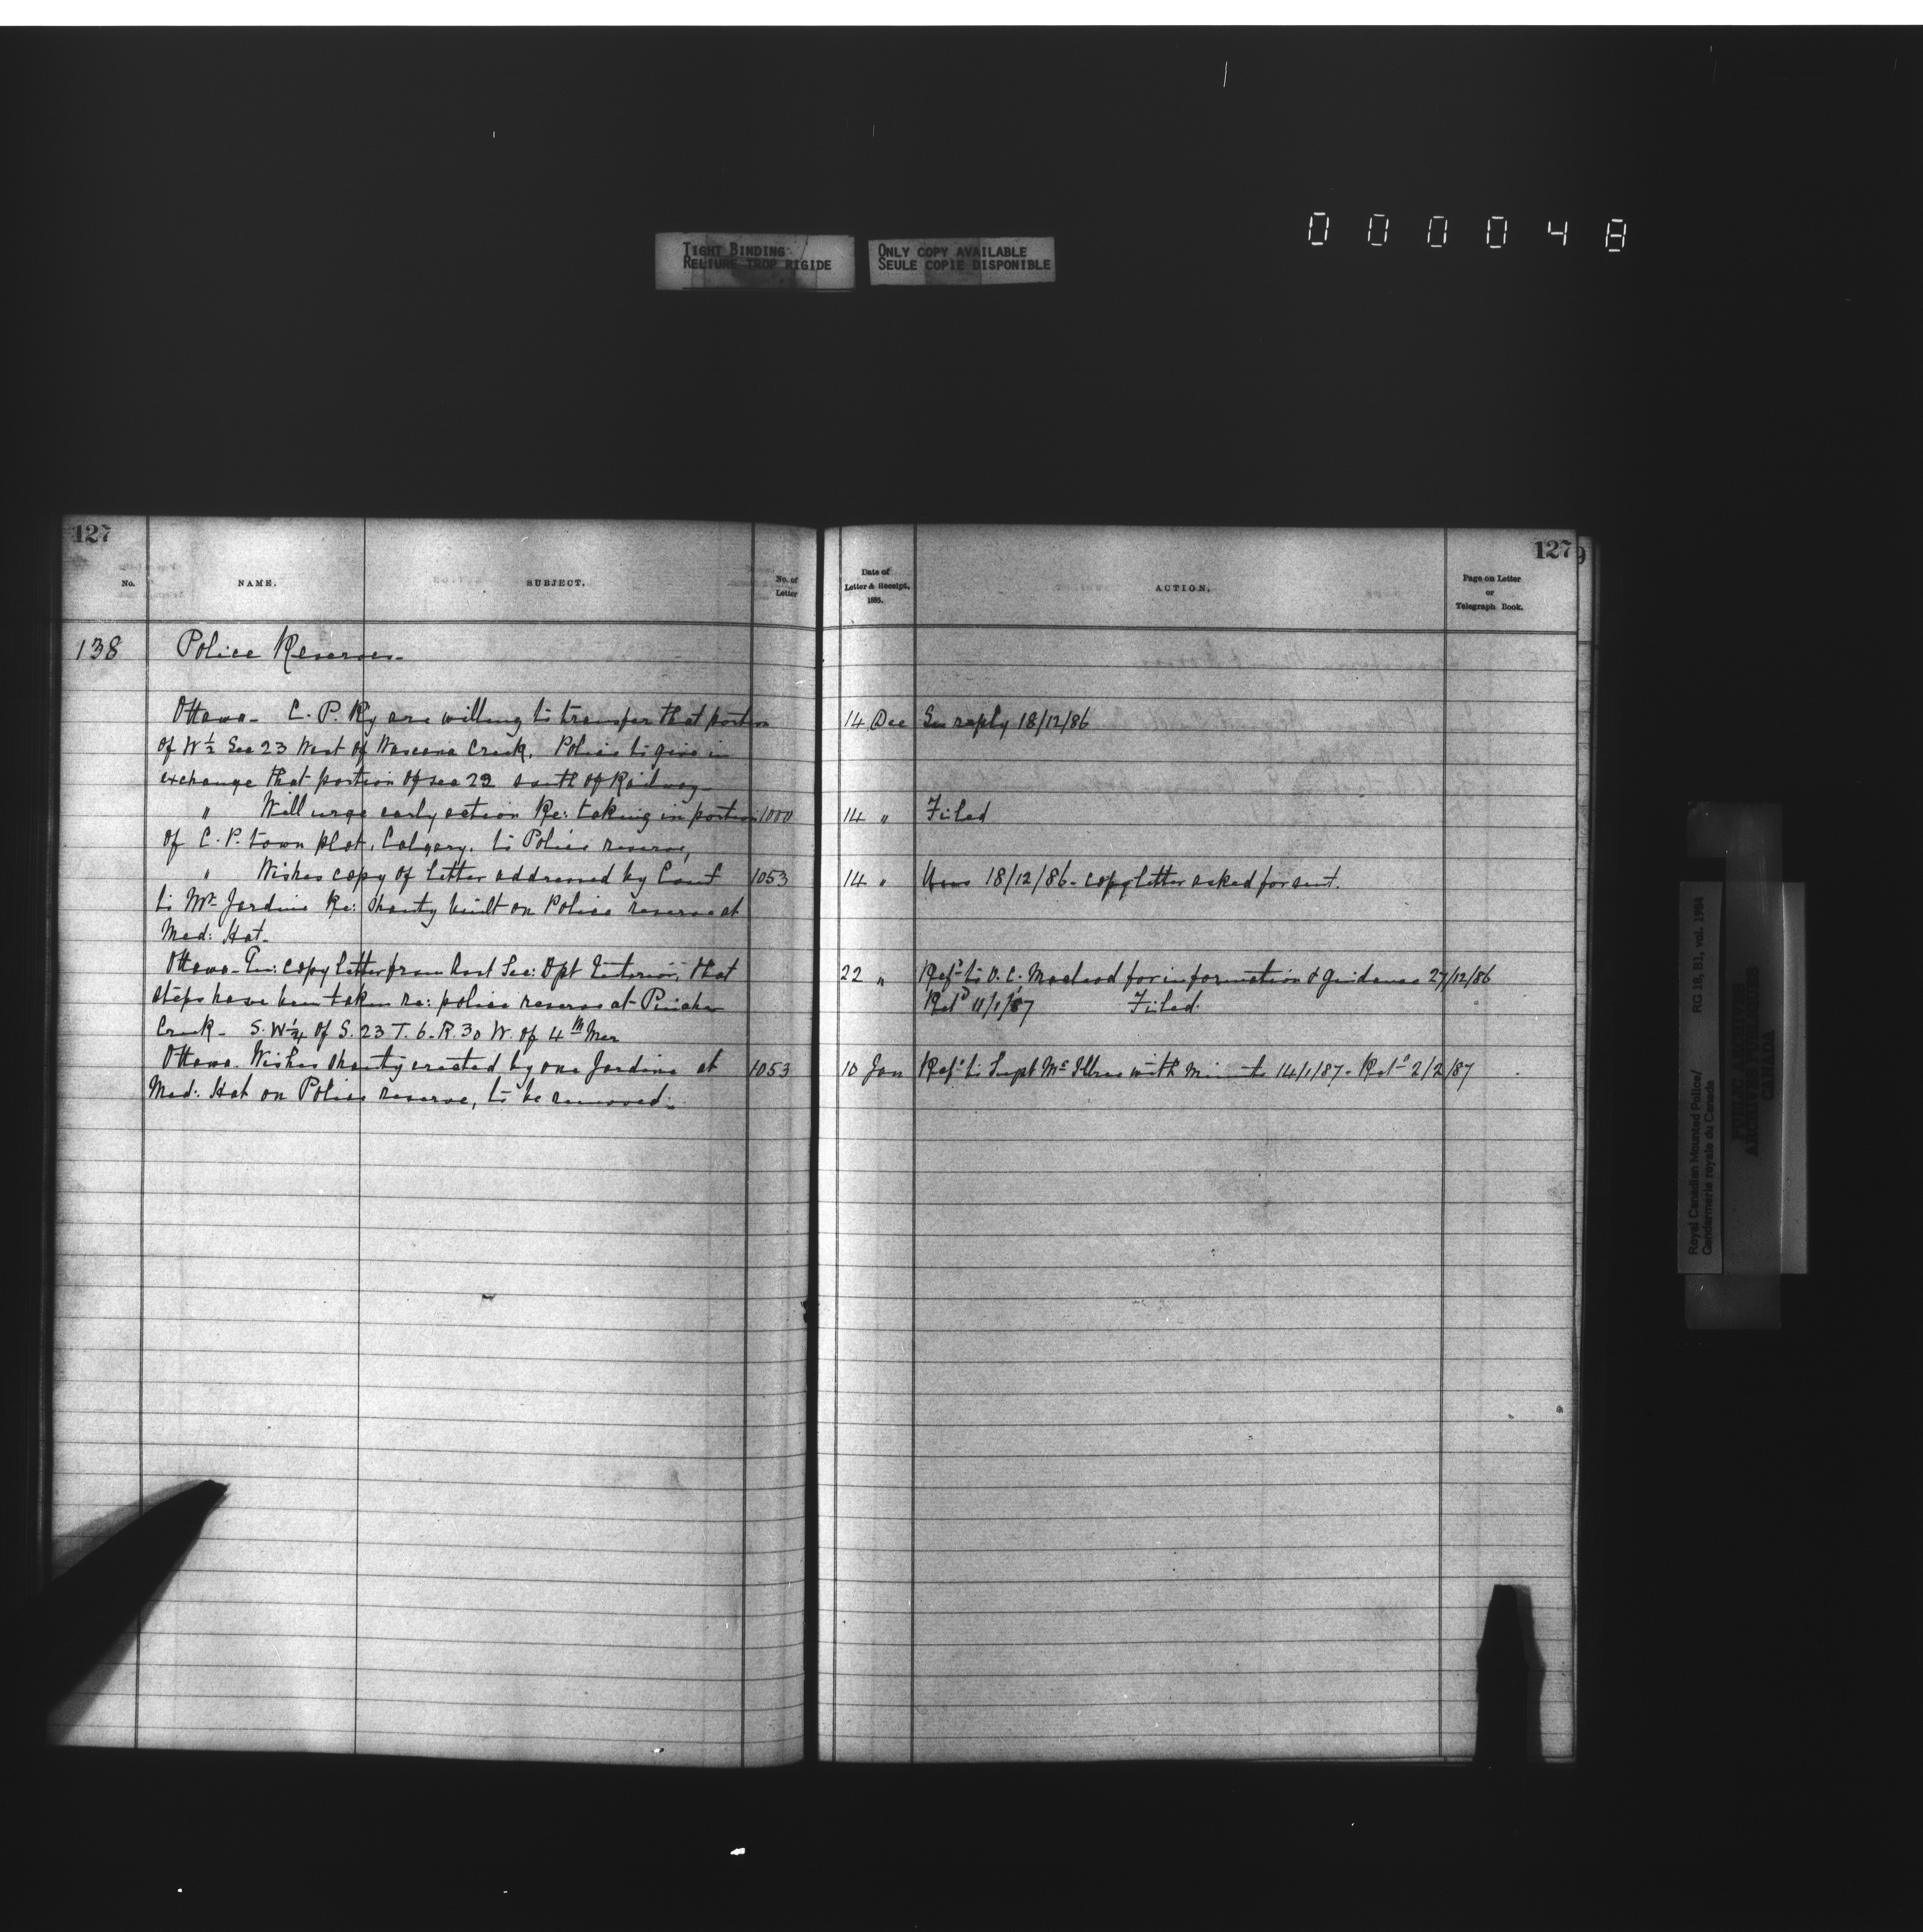 000048
TIGHT BINDING
RELIURE TROP RIGIDE
ONLY COPY AVAILABLE
SEULE COPIE DISPONIBLE
127
No.
NAME.
SUBJECT.
No. of
Letter
138
Police Reserves-
Ottawa- C. P. Ry are willing to transfer that portion
of W ½ Sec 23 West of Wascana Creek. Police to give in
exchange that portion of sec 22 south of Railway-
" Will urge early action Re: taking in portion 1000
of C. P. town plot, Calgary, to Police reserve,
" Wishes copy of letter addressed by Comt 1053
to Mr Jardine Re: shanty built on Police reserve at
Med: Hat-
Ottawa- copy letter from Asst Sec: Dpt Interior, that
steps have been taken re: police reserve at Pincher
Creek- S. W ¼ of S. 23 T. 6. R. 30 W. of 4th Mer
Ottawa. Wishes shanty erected by one Jardine at 1053
Med: Hat on Police reserve, to be removed-
127
9
Date of
Letter & Receipt.
1885.
ACTION.
Page on Letter
or
Telegraph Book.
14 Dec reply 18/12/86
14 " Filed
14 " 18/12/86- copy letter asked for sent.
22 " Refd to O. C. Macleod for information & guidance 27/12/86
Retd 11/1/87 Filed
10 Jan Refd to Supt McIllree with Minute 14/1/87- Retd 2/2/87
Royal Canadian Mounted Police/
Gendarmerie royale du Canada
RG 18, B1, vol. 1984
PUBLIC ARCHIVES
ARCHIVES PUBLIQUES
CANADA